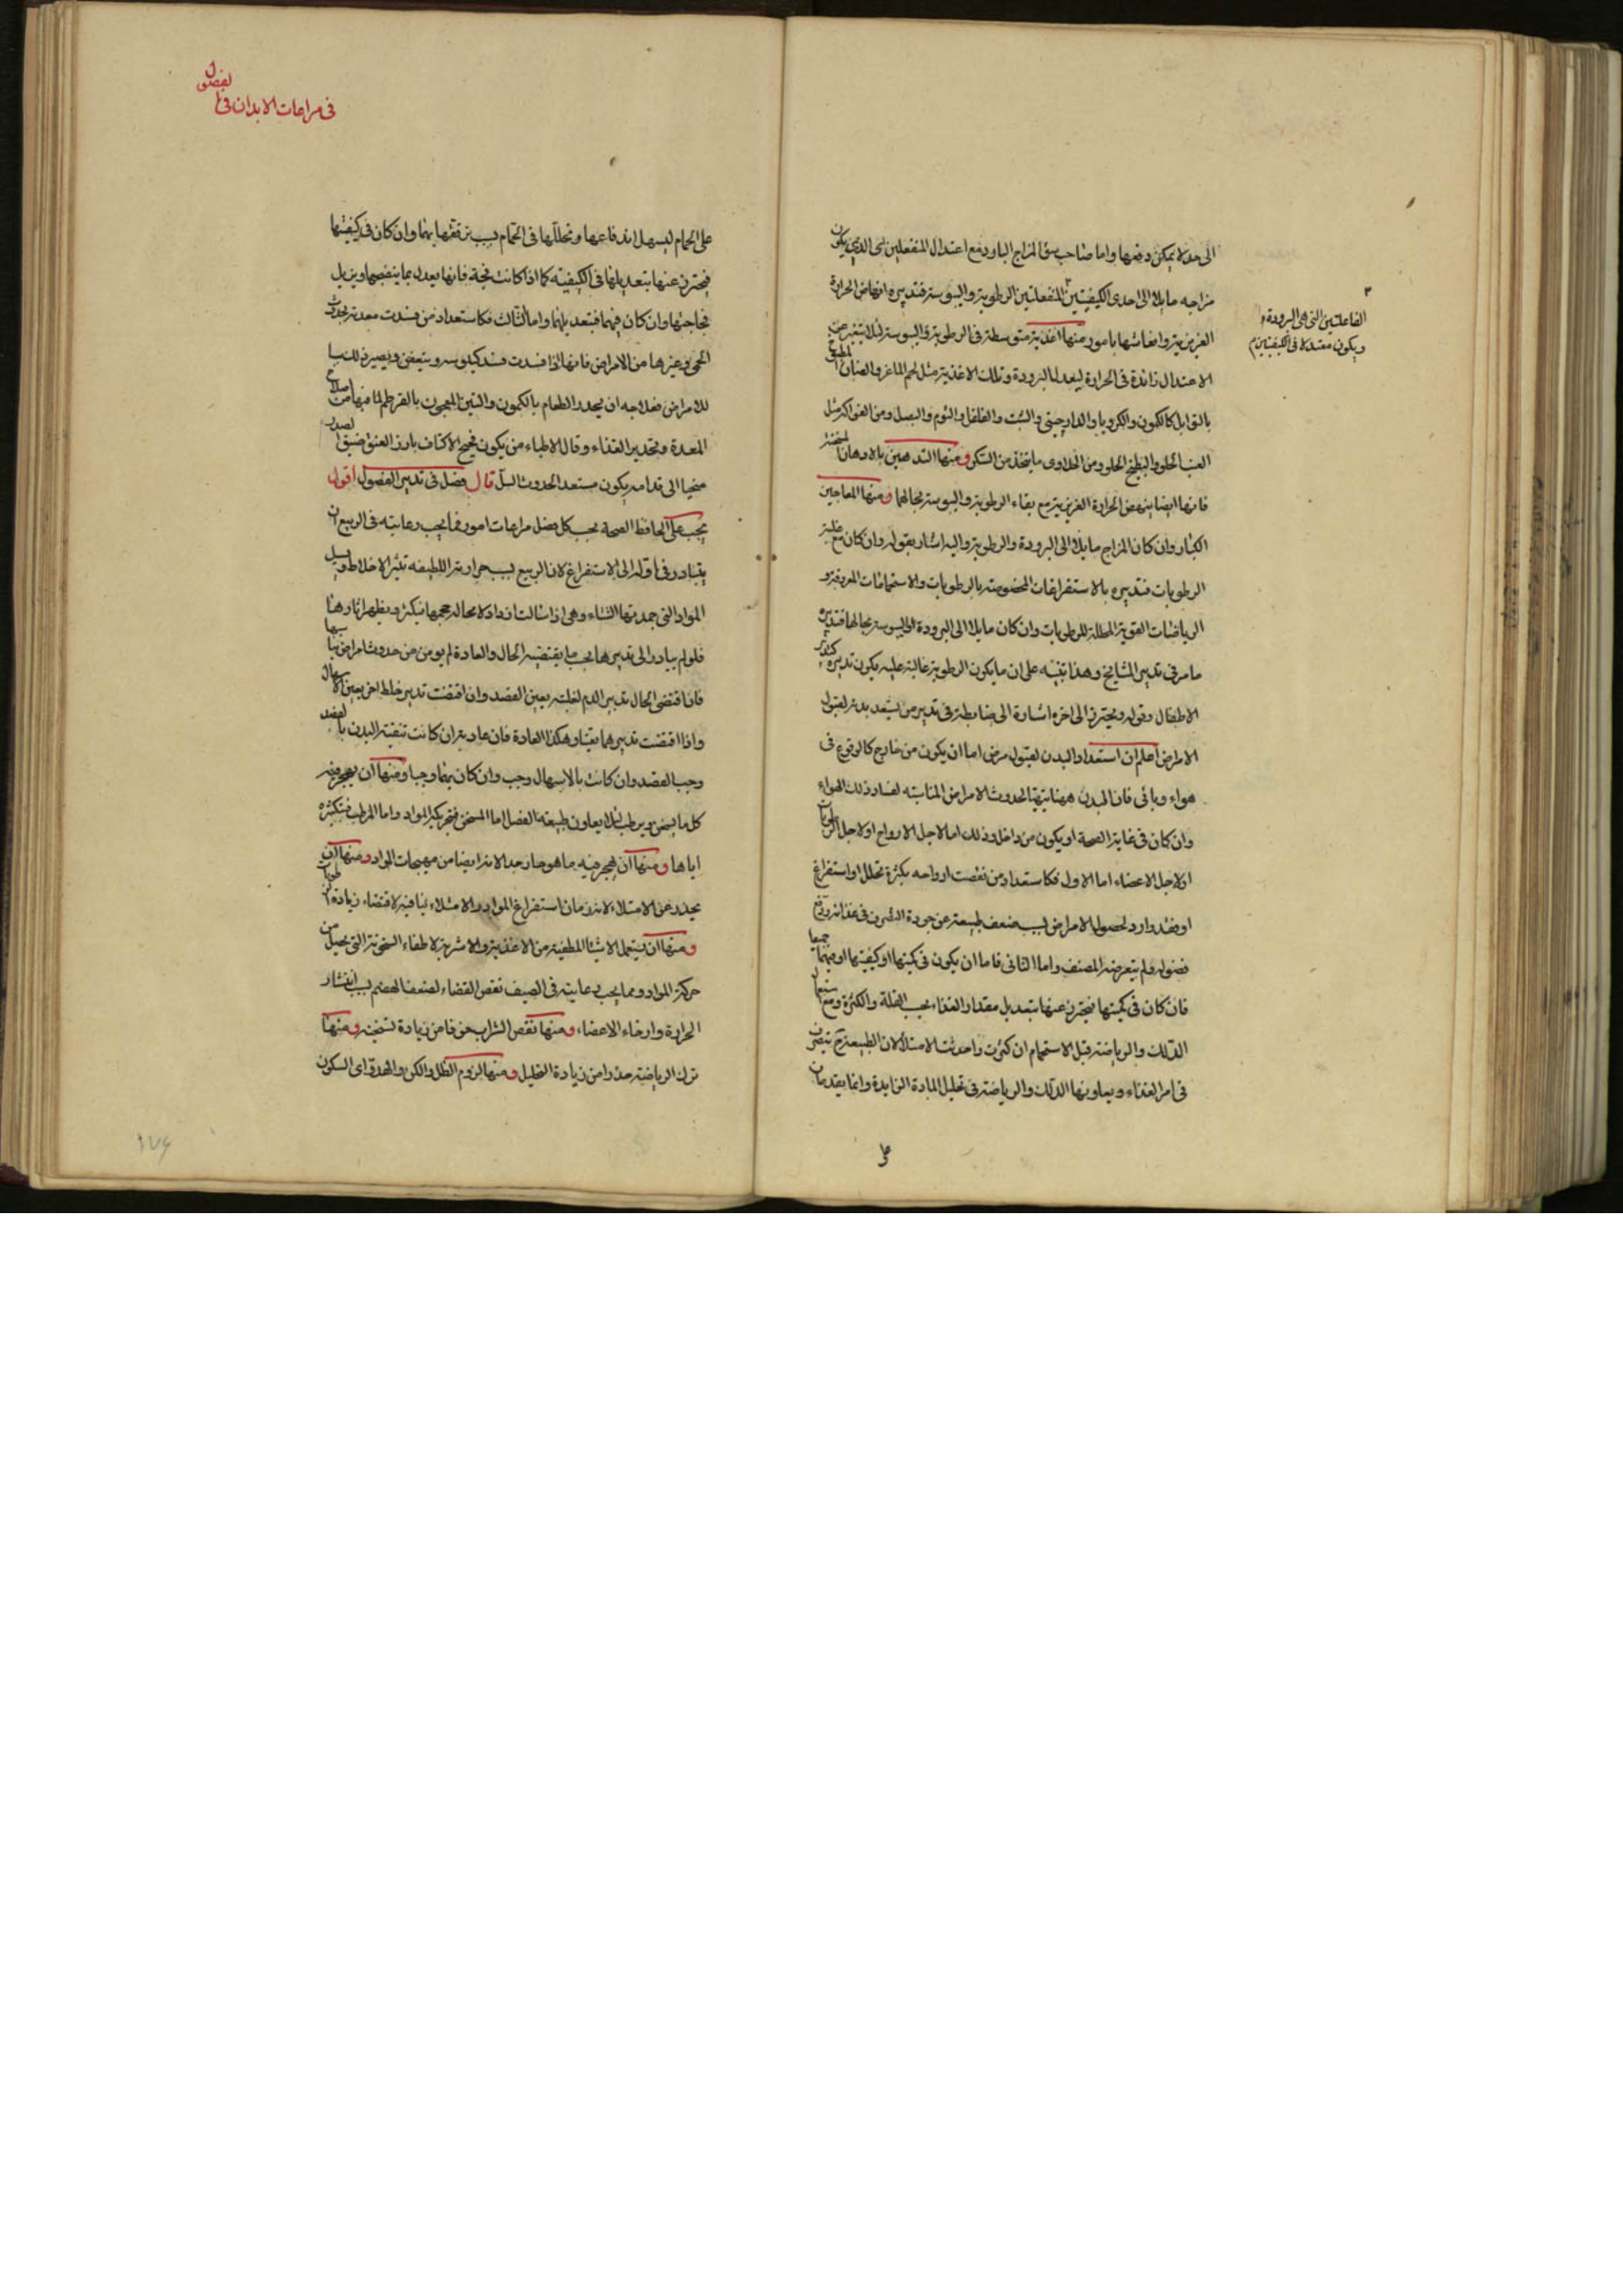 الى حد لا يمكن دفعها واما صاحب سوء المزاج البارد مع اعتدال المنفعلين اى الذى يكون
مزاجه مايلا الى احدى الكيفيتين المنفعلتين الرطوبة واليبوسة فتدبيره انهاض الحرارة
الفاعلتين التى هى البرودة
ويكون معتدلا فى الكيفيتين
الغريزية وانعاشها بامور منها اغذية متوسطة فى الرطوبة واليبوسة لئلا يتغير عن
الاعتدال زائدة فى الحرارة ليعدل البرودة وتلك الاغذية مثل لحم الماعز والضأن المطبوخ
بالتوابل كالكمون والكرويا والدارچينى والشبت والفلفل والثوم والبصل ومن الفواكه مثل
العنب الحلو والبطيخ الحلو ومن الحلاوى ما يتخذ من السكر ومنها التدهين بالادهان المسخنة
فانها ايضا ينهض الحرارة الغريزية مع بقاء الرطوبة واليبوسة بحالهما ومنها المعاجين
الكبار وان كان المزاج مايلا الى البرودة والرطوبة واليه اشار بقوله وان كان مع غلبة
الرطوبات فتدبيره بالاستفراغات المخصوصة بالرطوبات والاستحمامات المعرقة و
الرياضات القوية المحللة للرطوبات وان كان مايلا الى البرودة واليبوسة بحالها فتدبيره
ما مر فى تدبير المشايخ وهذا تنبيه على ان ما يكون الرطوبة غالبة عليه يكون تدبيره كتدبير
الاطفال وقوله ويحترز الى اخره اشارة الى ضابطة فى تدبير من يستعد بدنه لقبول
الامراض اعلم ان استعداد البدن لقبول مرض اما ان يكون من خارج كالوقوع فى
هواء وبائى فان البدن ههنا يتهيأ لحدوث الامراض المناسبة لفساد ذلك الهواء
وان كان فى غاية الصحة او يكون من داخل وذلك اما لاجل الارواح او لاجل الرطوبات
او لاجل الاعضاء اما الاول فكاستعداد من نقصت ارواحه بكثرة تحلل او استفراغ
او فقد وارد لحصول الامراض بسبب ضعف طبيعته عن جودة التصرف فى غذائه ودفع
فضوله ولم يتعرضه المصنف واما الثانى فاما ان يكون فى كميتها او كيفيتها او فيهما جميعا
فان كان فى كميتها فيحترز عنها بتعديل مقدار الغذاء بحسب القلة والكثرة ومع استعمال
الدلك والرياضة قبل الاستحمام ان كثرت واحدثت الامتلاء لان الطبيعة ح يتصرف
فى امر الغذاء ويعاونها الدلك والرياضة فى تحليل المادة الزايدة وانما يقدمان
على
فى مراعات الابدان فى الفصول
على الحمام ليسهل اندفاعها وتحللها فى الحمام بسبب ترققها بهما وان كان فى كيفيتها
فيحترز عنها بتعديلها فى الكيفية كما اذا كانت فجة فانها يعدل بما ينضجها ويزيل
فجاجتها وان كان فيهما فبتعديلهما واما الثالث فكاستعداد من فسدت معدته لحدوث
الحمى وغيرها من الامراض فانها اذا فسدت فسد كيلوسه ويتعفن ويصير ذلك سببا
للامراض فعلاجه ان يحدر الطعام بالكمون والتين المعجون بالقرطم لما فيها من اصلاح
المعدة وتحدير الغذاء وقال الاطباء من يكون مجنح الاكتاف بارز العنق ضيق الصدر
منحنيا الى قدامه يكون مستعد الحدوث السل قال فصل فى تدبير الفصول اقول
يجب على الحافظ الصحة بحسب كل فصل مراعات امور فما يجب رعايته فى الربيع ان
يتبادر فى اوله الى الاستفراغ لان الربيع بسبب حرارته اللطيفه تثير الاخلاط ويسيل
المواد التى جمدتها الشتاء وهى اذا سالت ازداد لا محاله حجمها فيكثر ويظهر اثارها
فلو لم يبادر الى تدبيرها بحسب ما يقتضيه الحال والعادة لم يؤمن من حدوث امراض بسببها
فاذا اقتضى الحال تدبير الدم لغلبته يعين الفصد وان اقتضت تدبير خلط اخر يعين الاسهال
واذا اقتضت تدبيرهما يعينا وهكذا العادة فان عادته ان كانت تنقية البدن بالفصد
وجب الفصد وان كانت بالاسهال وجب وان كان بهما وجبا ومنها ان يهجر فيه
كل ما يسخن ويرطب لئلا يعاون طبيعته الفصل اما المسخن فتحريكه المواد واما المرطب فتكثيره
اياها ومنها ان يهجر فيه ما هو حار جدا لانه ايضا من مهيجات المواد ومنها ان
يحذر عن الامتلاء لانه زمان استفراغ المواد والامتلاء ينافيه لاقتضاء زيادة الرطوبات
ومنها ان يستعمل الاشياء المطفية من الاغذية والاشربة لاطفاء السخونة التى يحصل من
حركة المواد ومما يجب رعايته فى الصيف نقص الغذاء لضعف الهضم بسبب انتشار
الحرارة وارخاء الاعضاء ومنها نقص الشراب خوفا من زيادة تسخينه ومنها
ترك الرياضة حذرا من زيادة التحليل ومنها لزوم الظل والكن والهدو اى السكون